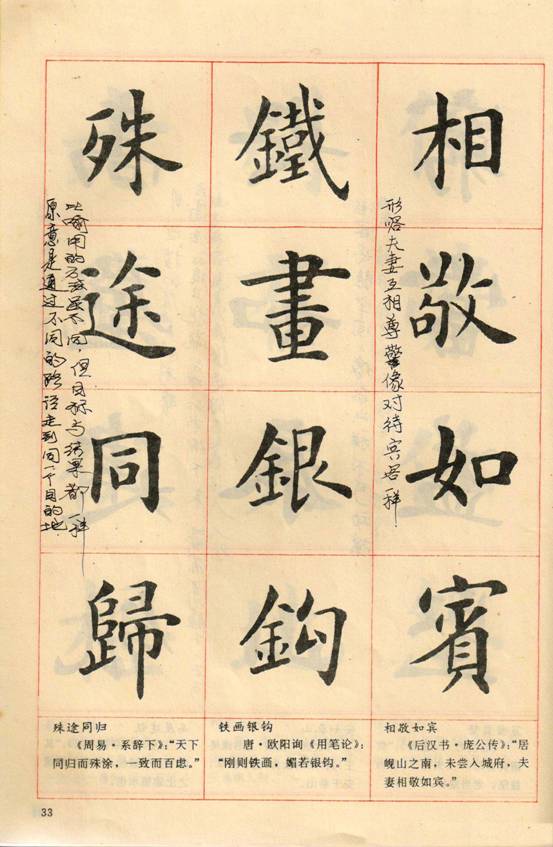 相敬如賓
形容夫妻互相尊敬像对待宾客一样
鐵畫銀鈎
殊途同歸
比喻用的方法虽不同，但目标与结果都一样
原意是通过不同的路径走到同一个目的地.
殊途同归
《周易·系辞下》：“天下
同归而殊涂，一致而百虑。”
铁画银钩
唐·欧阳询《用笔论》：
“刚则铁画，媚若银钩。”
相敬如宾
《后汉书·庞公传》：“居
岘山之南，未尝入城府，夫
妻相敬如宾。”
33